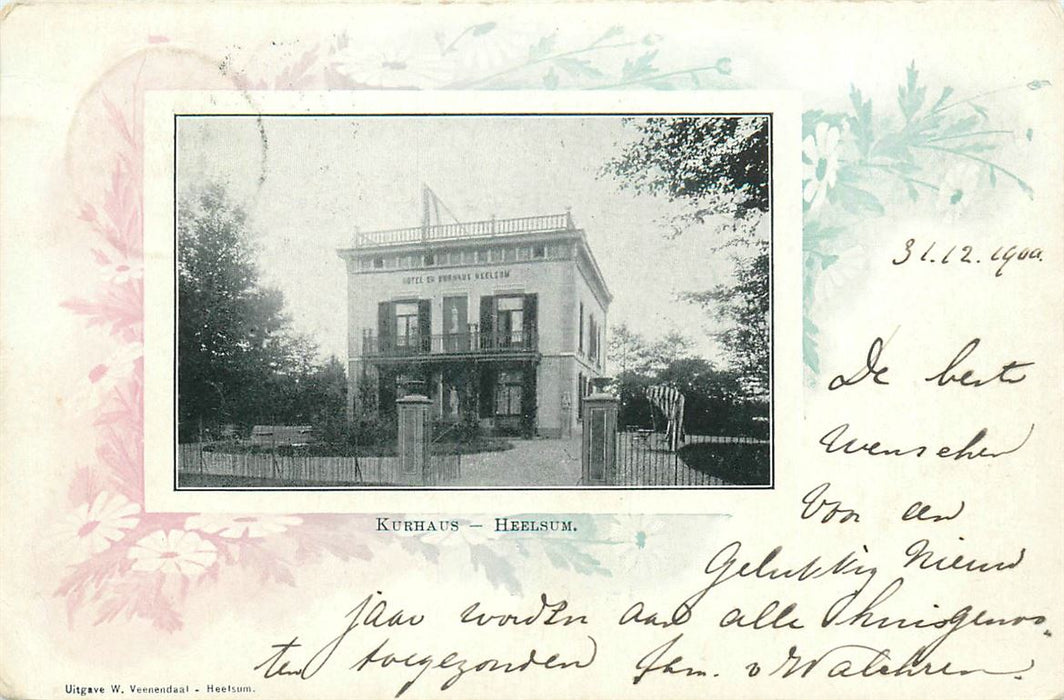 HOTEL EN KURHAUS HEELSUM
KURHAUS – HEELSUM.
31.12.1900.
De beste
Wenschen
Voor een
Gelukkig Nieuw
jaar worden aan alle huisgenoo-
ten toegezonden fam. v Walchren.
Uitgave W. Veenendaal - Heelsum.